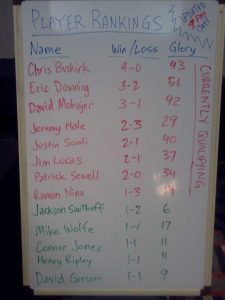 PLAYER RANKINGS
UPDATED
Name Win/Loss Glory
Chris Buskirk 4-0 43
Eric Downing 3-2 51
David Mohajer 3-1 42
Jeremy Hale 2-3 29
Justin Scioli 2-1 40
Jim Lucas 2-1 37
Patrick Sewell 2-0 34
Ramon Nino 1-3
Jackson Southoff 1-2 6
Mike Wolfe 1-2 17
Connor Jones 1-1 11
Henry Ripley 1-1 11
David Gerson 1-1 9
CURRENTLY QUALIFYING